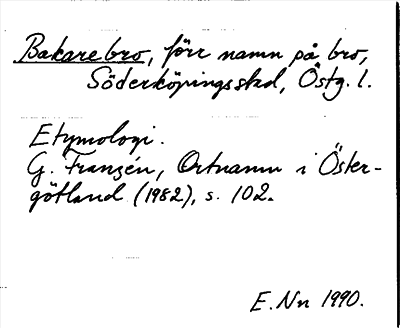 Bakare bro, förr namn på bro,
Söderköpings skd, Östg. l.
Etymologi.
G. Franzén, Ortnamn i Öster-
götland (1982), s. 102.
E. Nn 1990.